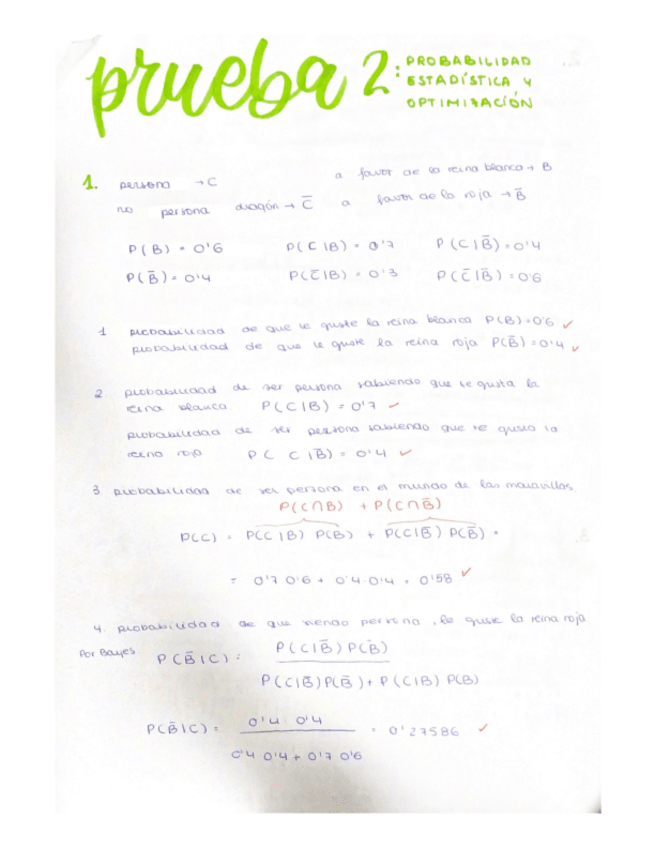 prueba 2: PROBABILIDAD
ESTADÍSTICA Y
OPTIMIZACIÓN
1. persona → C a favor de la reina blanca → B
no persona dragón → C̅ a favor de la roja → B̅
P(B) = 0'6 P(C|B) = 0'7 P(C|B̅) = 0'4
P(B̅) = 0'4 P(C̅|B) = 0'3 P(C̅|B̅) = 0'6
1 probabilidad de que le guste la reina blanca P(B)=0'6 ✓
probabilidad de que le guste la reina roja P(B̅)=0'4 ✓
2 probabilidad de ser persona sabiendo que le gusta la
reina blanca P(C|B) = 0'7 ✓
probabilidad de ser persona sabiendo que le gusta la
reina roja P(C|B̅) = 0'4 ✓
3 probabilidad de ser persona en el mundo de las maravillas
P(C∩B) + P(C∩B̅)
P(C) = P(C|B) P(B) + P(C|B̅) P(B̅) =
= 0'7 0'6 + 0'4·0'4 = 0'58 ✓
4. probabilidad de que siendo persona, le guste la reina roja
Por Bayes P(B̅|C) = P(C|B̅) P(B̅)
P(C|B̅)P(B̅) + P(C|B) P(B)
P(B̅|C) = 0'4 · 0'4 = 0'27586 ✓
0'4 0'4 + 0'7 0'6